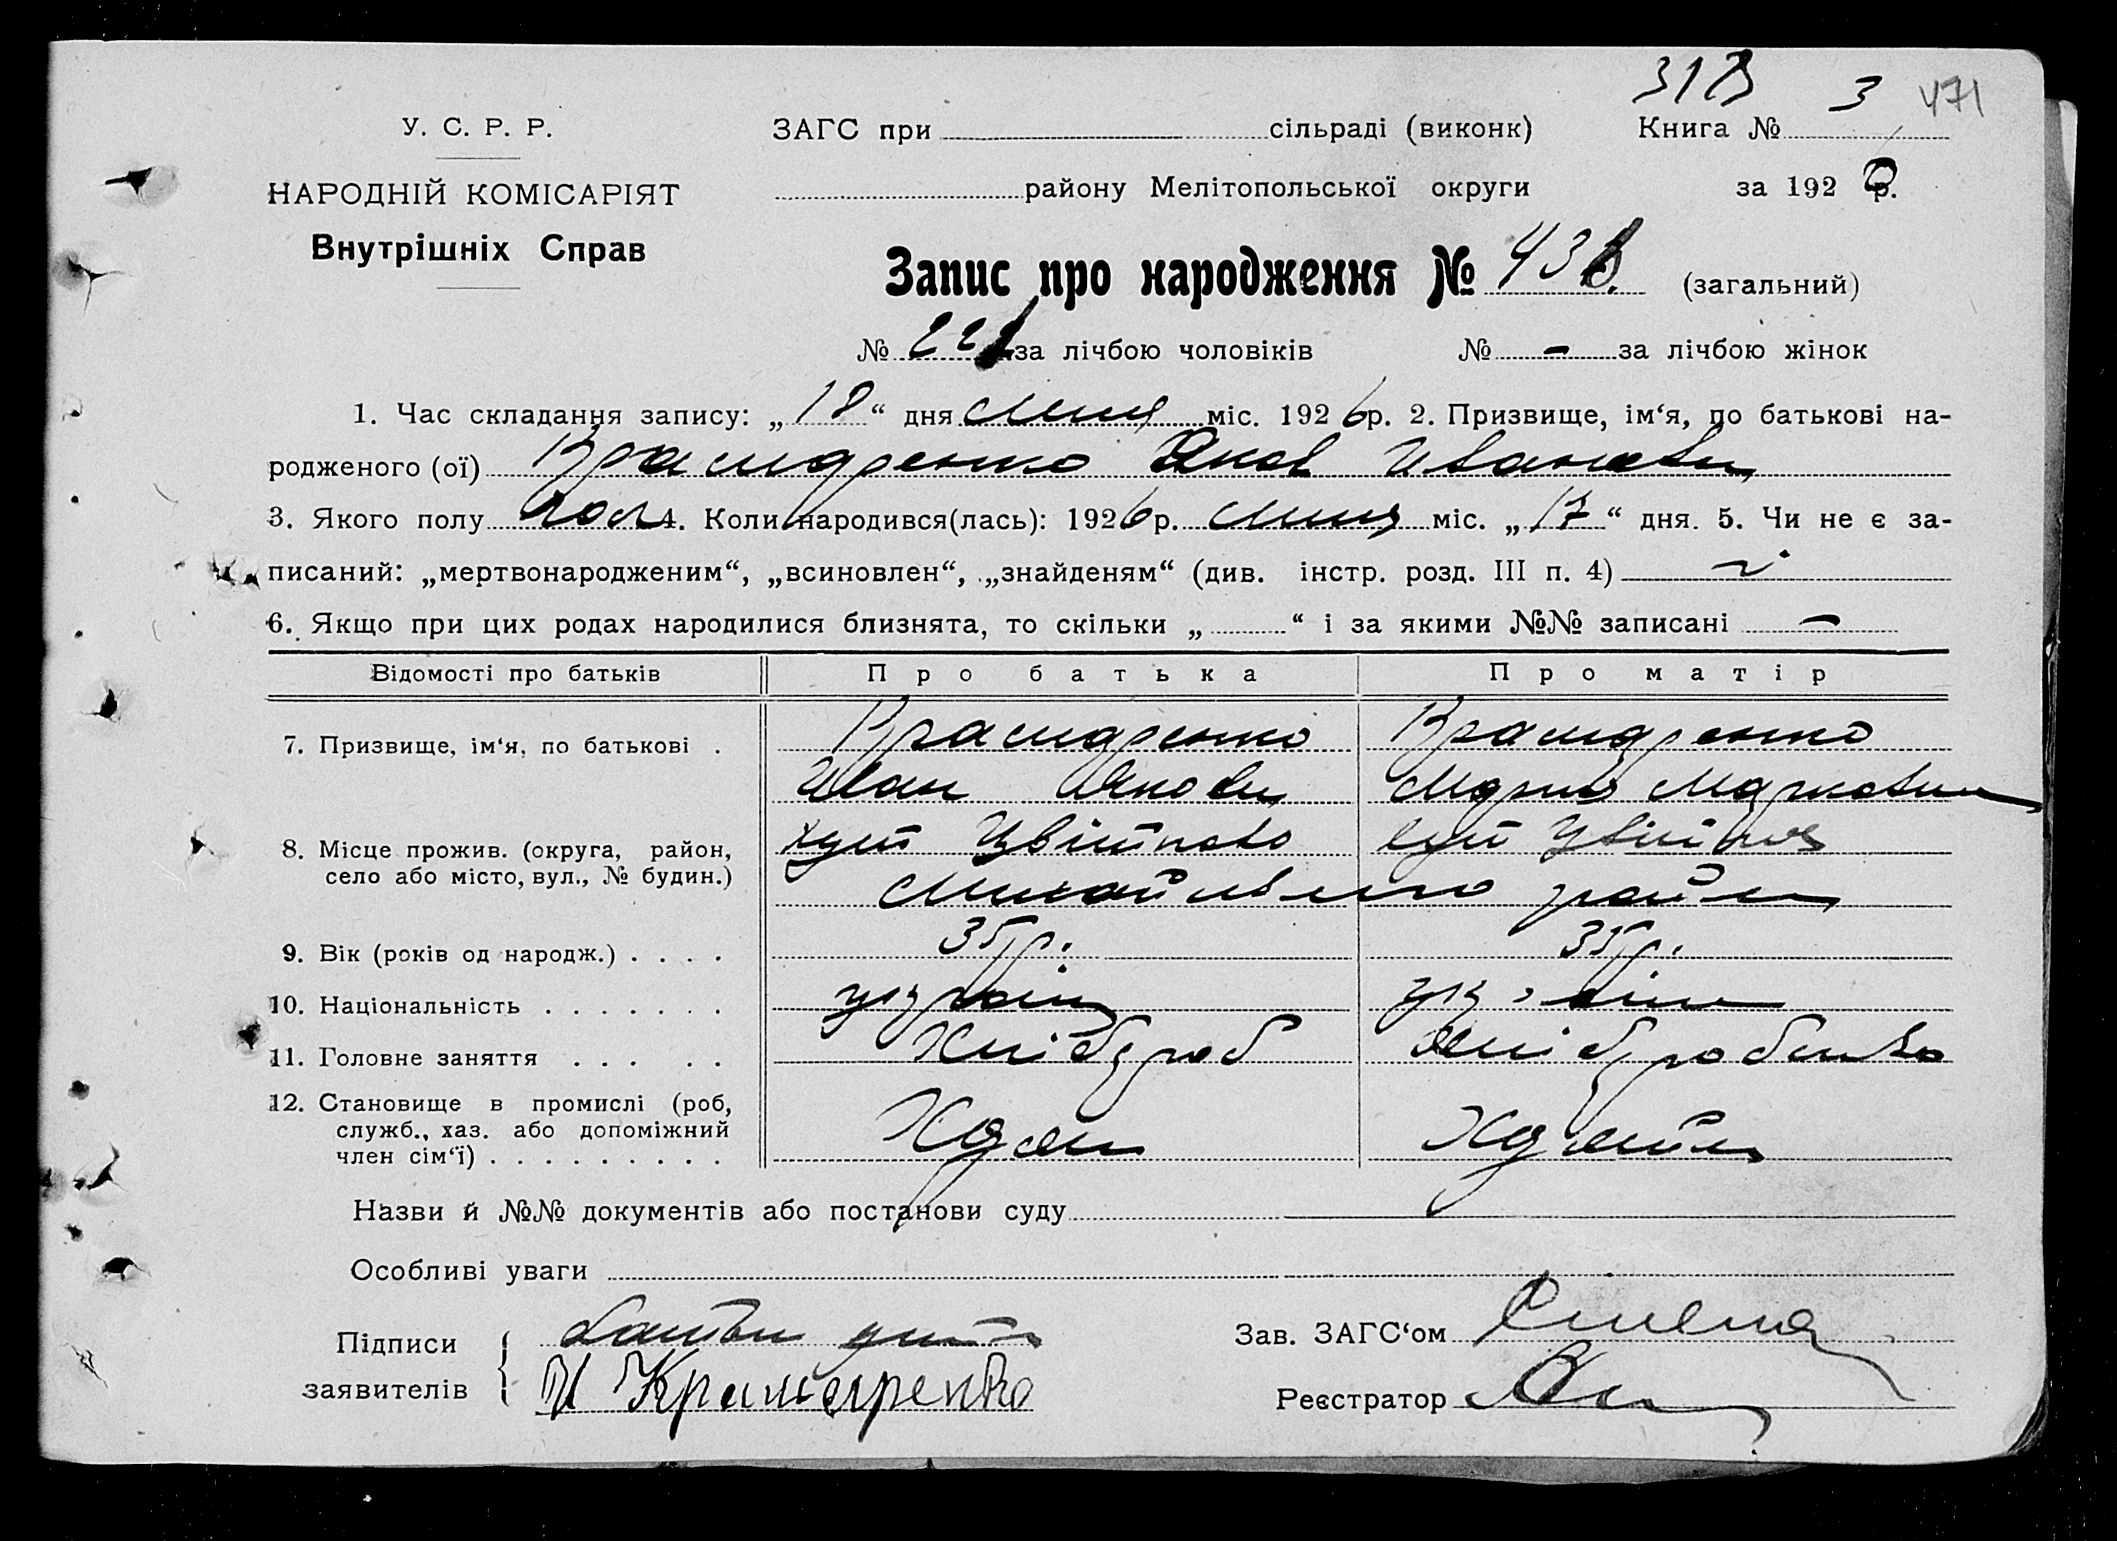 313 3 471
У. С. Р. Р. ЗАГС при сільраді (виконк) Книга №
НАРОДНІЙ КОМІСАРІЯТ району Мелітопольської округи за 192 р.
Внутрішніх Справ
Запис про народження № 436. (загальний)
№ 221 за лічбою чоловіків № - за лічбою жінок
1. Час складання запису: „ 18 “ дня міс. 192 6 р. 2. Призвище, ім‘я, по батькові на-
родженого (ої) Крамаренко Яков Иванови
3. Якого полу чол 4. Коли народився(лась): 192 6 р. міс. „ 17 “ дня. 5. Чи не є за-
писаний: „мертвонародженим“, „всиновлен“, „знайденям“ (див. інстр. розд. III п. 4)
6. Якщо при цих родах народилися близнята, то скільки „ “ і за якими №№ записані -
Відомості про батьків Про батька Про матір
7. Призвище, ім‘я, по батькові . Крамаренко Крамаренко
Иван Якови Мария Маркови
8. Місце прожив. (округа, район, хут Цвітково хут
село або місто, вул., № будин.) Михайлівського райо
9. Вік (років од народж.) . . . . 35 р. 35 р.
10. Національність . . . . . . . україн
11. Головне заняття . . . . . Хлібороб Хлібороб
12. Становище в промислі (роб,
служб., хаз. або допоміжний Хазяин Хазяйка
член сім‘ї) . . . . . . . . .
Назви й №№ документів або постанови суду
Особливі уваги
Підписи Зав. ЗАГС‘ом
заявителів И Крамаренко Реєстратор